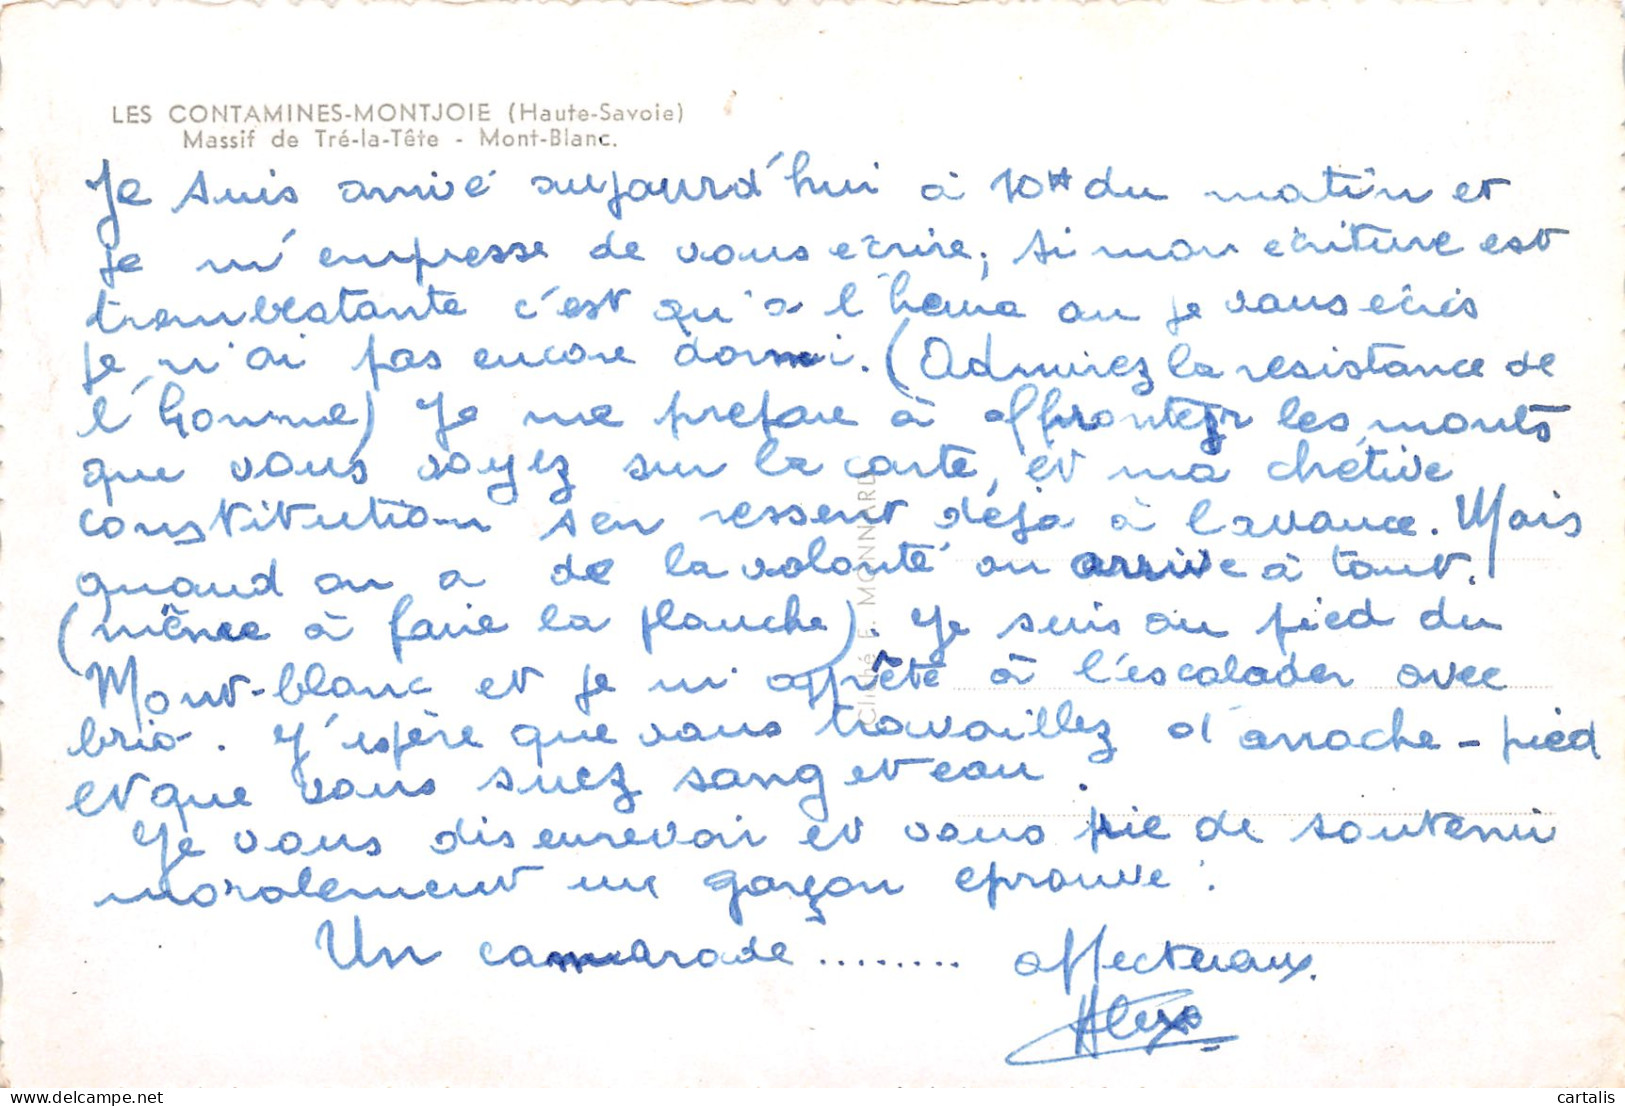 LES CONTAMINES-MONTJOIE (Haute-Savoie)
Massif de Tré-la-Tête - Mont-Blanc.
Je suis arrivé aujourd'hui à 10H du matin et
je m'empresse de vous ecrire, si mon écriture est
tremblotante c'est qu'a l'heure ou je vous ecris
je n'ai pas encore dormi. (Admirez la resistance de
l'homme) Je me prepare à affronter les monts
que vous voyez sur la carte, et ma chétive
constitution s'en ressent déja à l'avance. Mais
quand on a de la volonté on arrive à tout.
(même à faire la planche). Je suis au pied du
Mont-blanc et je m'apprête à l'escalader avec
brio. J'espère que vous travaillez d'arrache-pied
et que vous suez sang et eau.
Je vous dis aurevoir et vous prie de soutenir
moralement un garçon eprouvé.
Un camarade ........ affectueux.
Cliché F. MONNARD
cartalis
delcampe.net